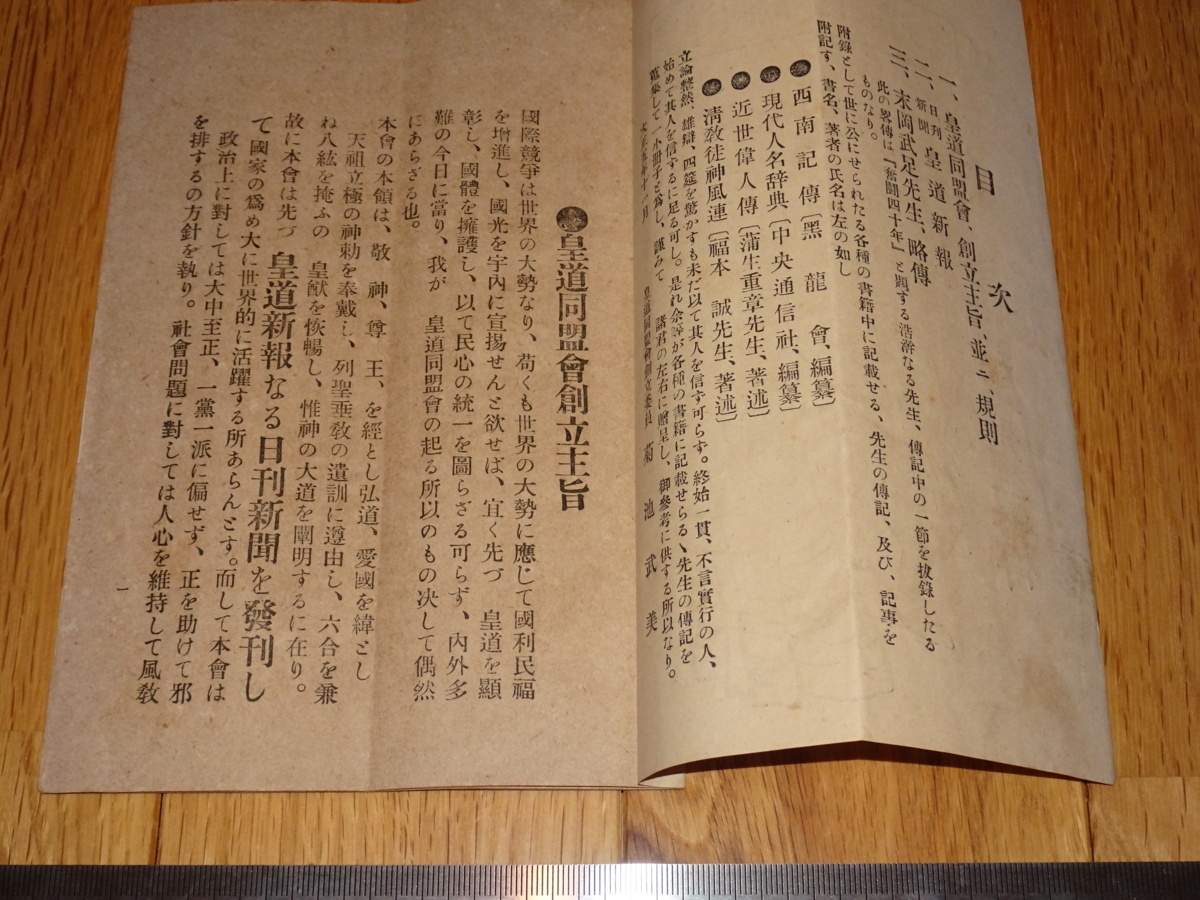 目次
一、皇道同盟會、創立主旨、並ニ規則
二、日刊新聞皇道新報
三、末岡武足先生、略傳
此の畧傳は『奮鬪四十年』と題する浩澣なる先生、傳記中の一節を抜錄したる
ものなり。
附錄として世に公にせられたる各種の書籍中に記載せる、先生の傳記、及び、記事を
附記す、書名、著者の氏名は左の如し
●西南記傳〔黑龍會、編纂〕
●現代人名辞典〔中央通信社、編纂〕
●近世偉人傳〔蒲生重章先生、著述〕
●淸敎徒神風連〔福本誠先生、著述〕
立論整然、雄辯、四筵を驚かすも未だ以て其人を信ず可らず。終始一貫、不言實行の人、
始めて其人を信ずるに足る可し。是れ余等が各種の書籍に記載せらるゝ先生の傳記を
蒐集して一小冊子と爲し、謹みて諸君の左右に贈呈し、御參考に供する所以なり。
皇道同盟會創立委員 菊池武美
●皇道同盟會創立主旨
國際競爭は世界の大勢なり、苟くも世界の大勢に應じて國利民福
を增進し、國光を宇內に宣揚せんと欲せば、宜く先づ 皇道を顯
彰し、國體を擁護し、以て民心の統一を圖らざる可らず、內外多
難の今日に當り、我が 皇道同盟會の起る所以のもの決して偶然
にあらざる也。
本會の本領は、敬神、尊王、を經とし弘道、愛國を緯とし
天祖立極の神勅を奉戴し、列聖垂敎の遺訓に遵由し、六合を兼
ね八紘を掩ふの 皇猷を恢暢し、惟神の大道を闡明するに在り。
故に本會は先づ 皇道新報なる日刊新聞を發刊し
て國家の爲め大に世界的に活躍する所あらんとす。而して本會は
政治上に對しては大中至正、一黨一派に偏せず、正を助けて邪
を排するの方針を執り。社會問題に對しては人心を維持して風敎
一